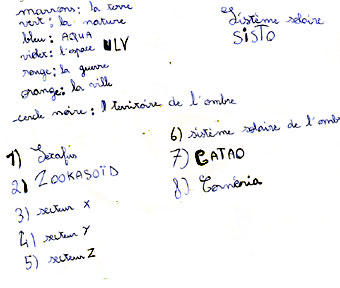 marrons: la terre
vert: la nature
bleu: AQUA
violet: l'espace ULV
rouge: la guerre
orange: la ville
cercle noire: territoire de l'ombre
Sistème solaire
SiSTO
1) Serafus
2) ZOOKASOÏD
3) secteur X
4) secteur Y
5) secteur Z
6) sistème solaire de l'omb
7) CATAO
8) Cornéria